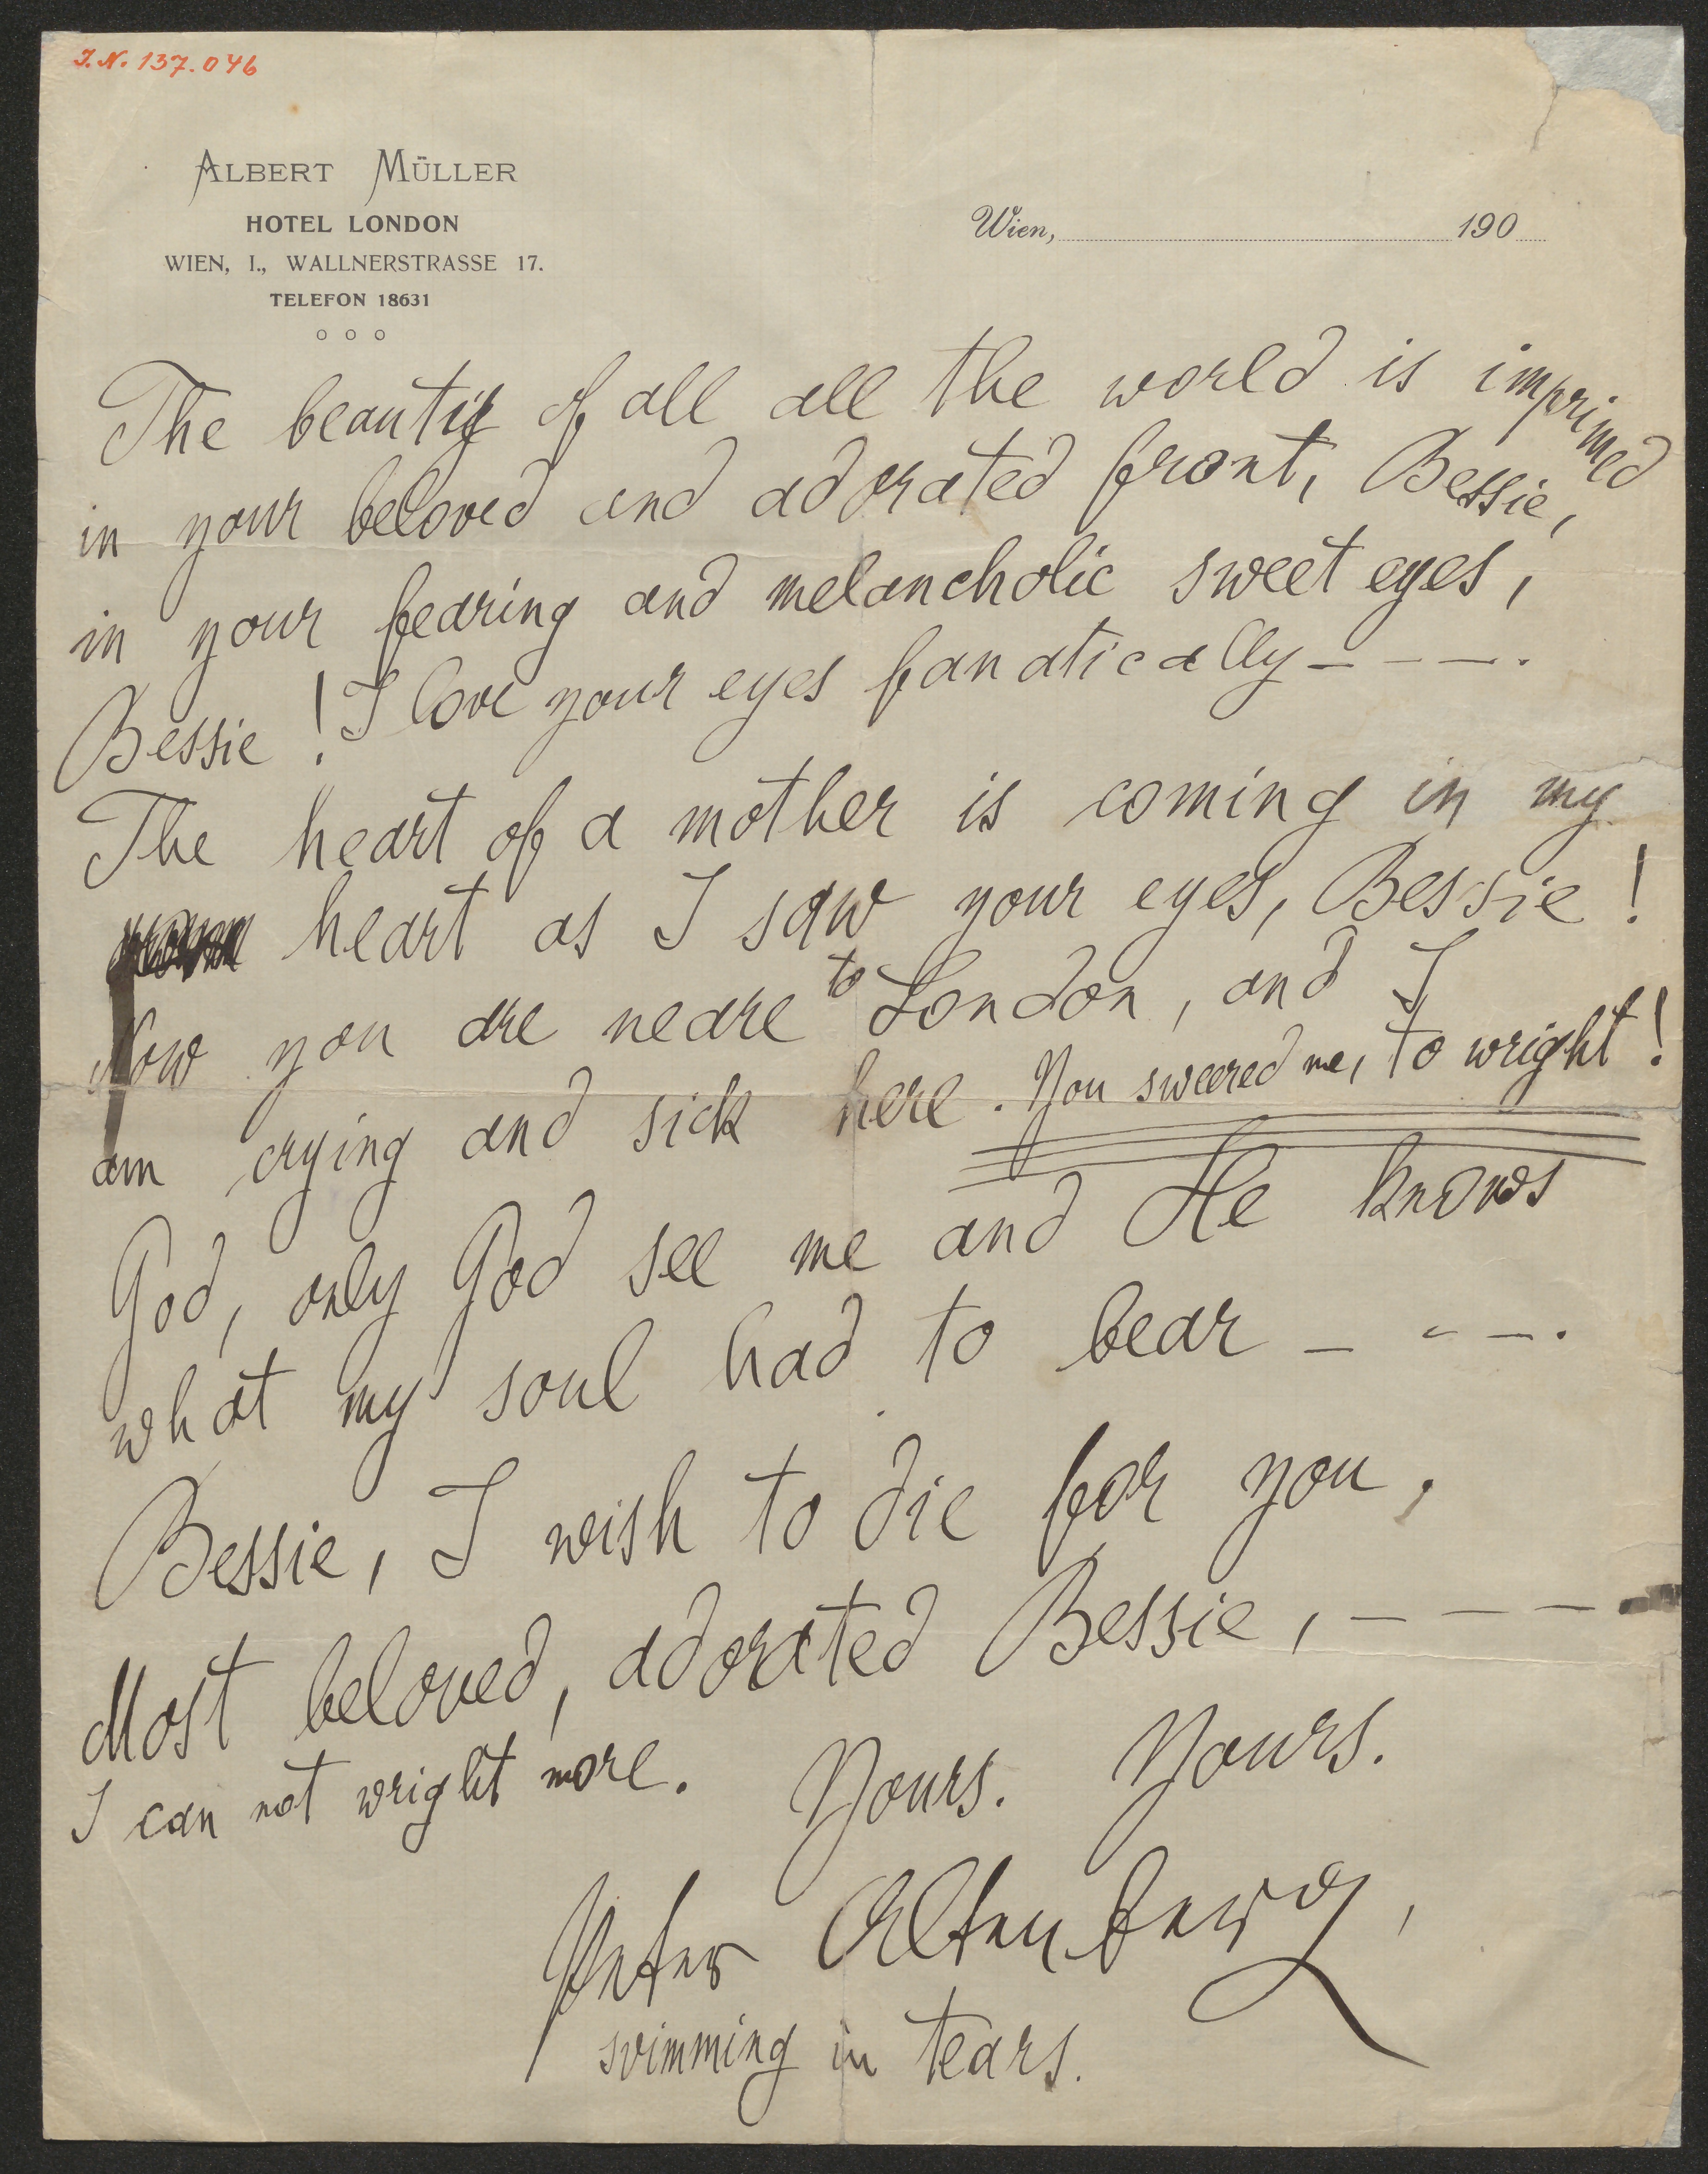 I.N. 137.046
ALBERT MÜLLER
HOTEL LONDON
WIEN, I., WALLNERSTRASSE 17.
TELEFON 18631
o o o
Wien, 190
The beauty of all all the world is imprimed
in your beloved and adorated front, Bessie,
in your fearing and melancholic sweet eyes,
Bessie! I love your eyes fanatically – – – .
The heart of a mother is coming in my
heart as I saw your eyes, Bessie!
Now you are neare to London, and I
am crying and sick here. You sweered me, to wright!
God, only God see me and He knows
what my soul had to bear – – – .
Bessie, I wish to die for you.
Most beloved, adorated Bessie, – – –
I can not wright more. Yours. Yours.
Peter Altenberg,
svimming in tears.